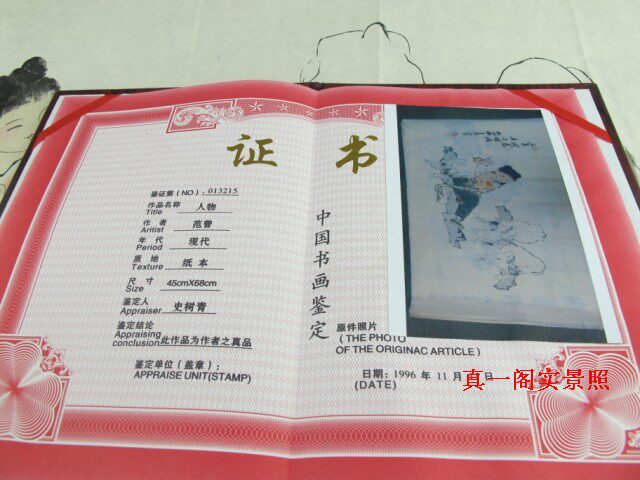 证 书
鉴证第(NO):013215
作品名称 人物
Title
作者 范曾
Aritist
年代 现代
Period
质地 纸本
Texture
尺寸 45cmX68cm
Size
鉴定人 史树青
Appraiser
鉴定结论
Appraising
conclusion 此作品为作者之真品
鉴定单位(盖章):
APPRAISE UNIT(STAMP)
中国书画鉴定
原件照片
(THE PHOTO
OF THE ORIGINAC ARTICLE)
日期:1996 年 11 月 日
(DATE)
真一阁实景照